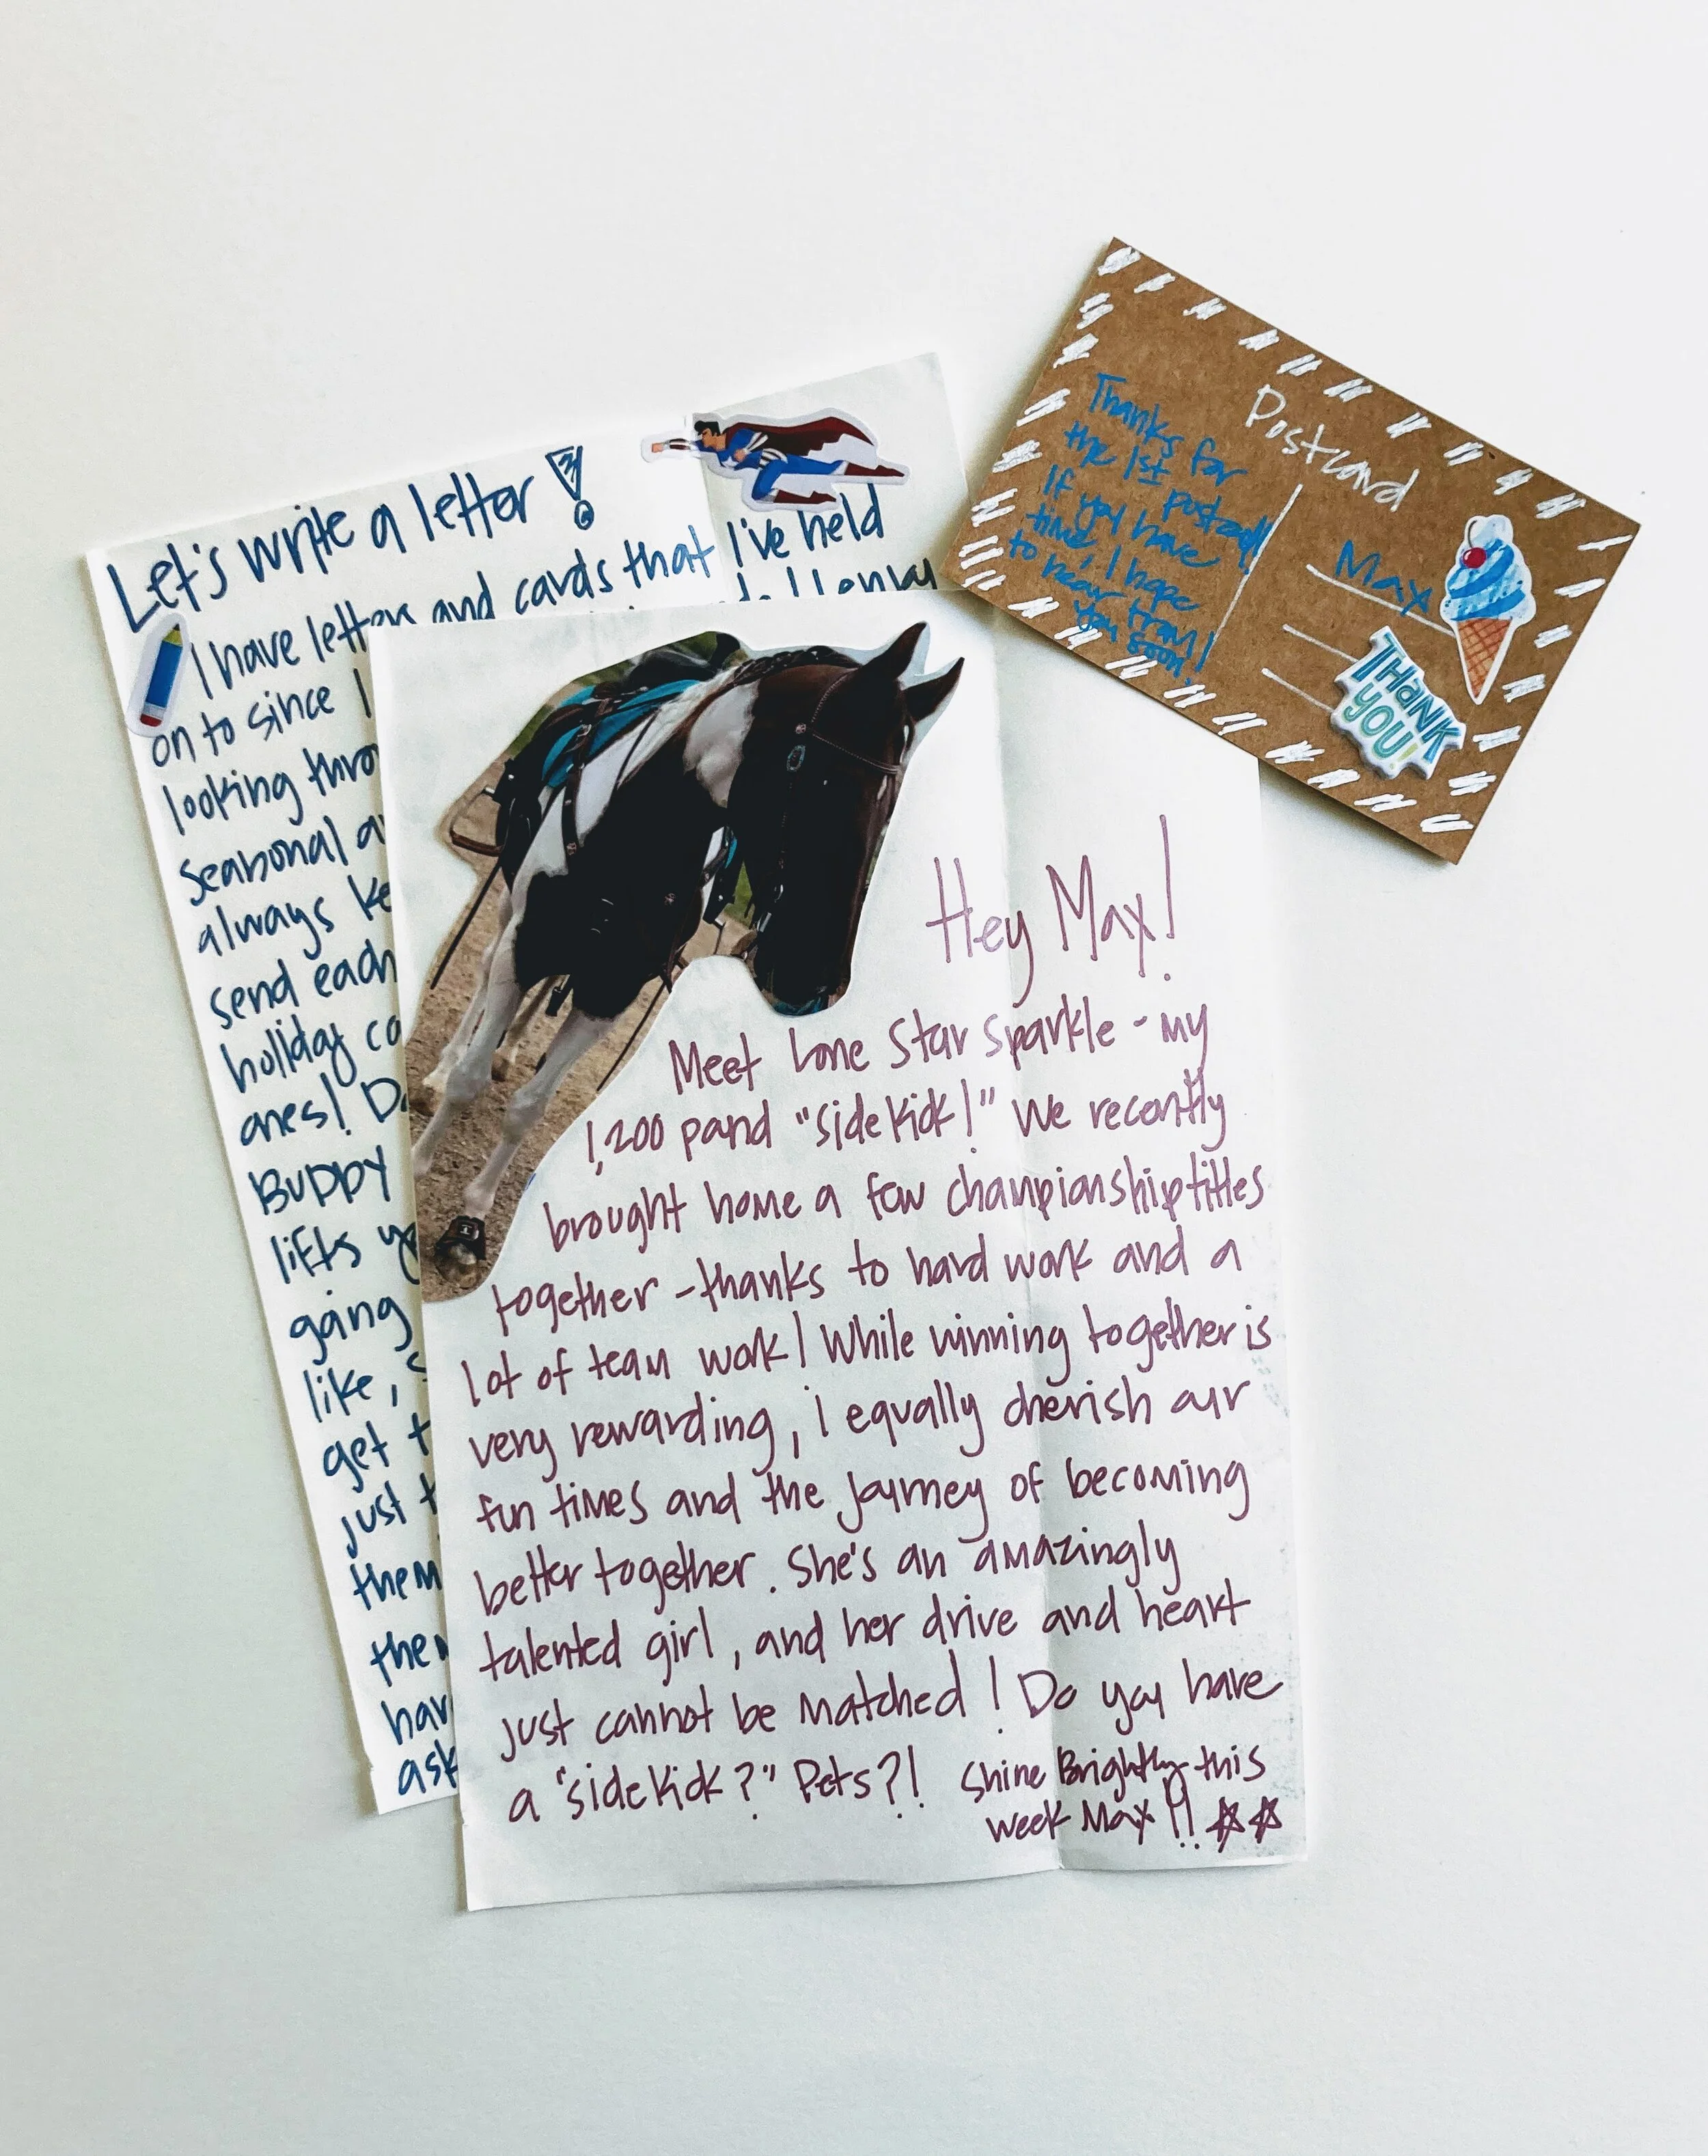 Let's write a letter!
I have letters and cards that I've held
on to since I
looking thro
seasonal a
always ke
send each
holiday ca
ones! Do
Buppy
lifts yo
going
like, s
get t
just t
them
then
hav
ask
Thanks for
the 1st postcard!!
If you have
time, I hope
to hear from
you soon!
Postcard
Max
THANK
YOU!
Hey Max!
Meet Lone Star Sparkle - my
1,200 pound "sidekick!" We recently
brought home a few championship titles
together - thanks to hard work and a
lot of team work! While winning together is
very rewarding, i equally cherish our
fun times and the journey of becoming
better together. She's an amazingly
talented girl, and her drive and heart
just cannot be matched! Do you have
a "sidekick?" Pets?! Shine Brightly this
week Max!! ☆☆